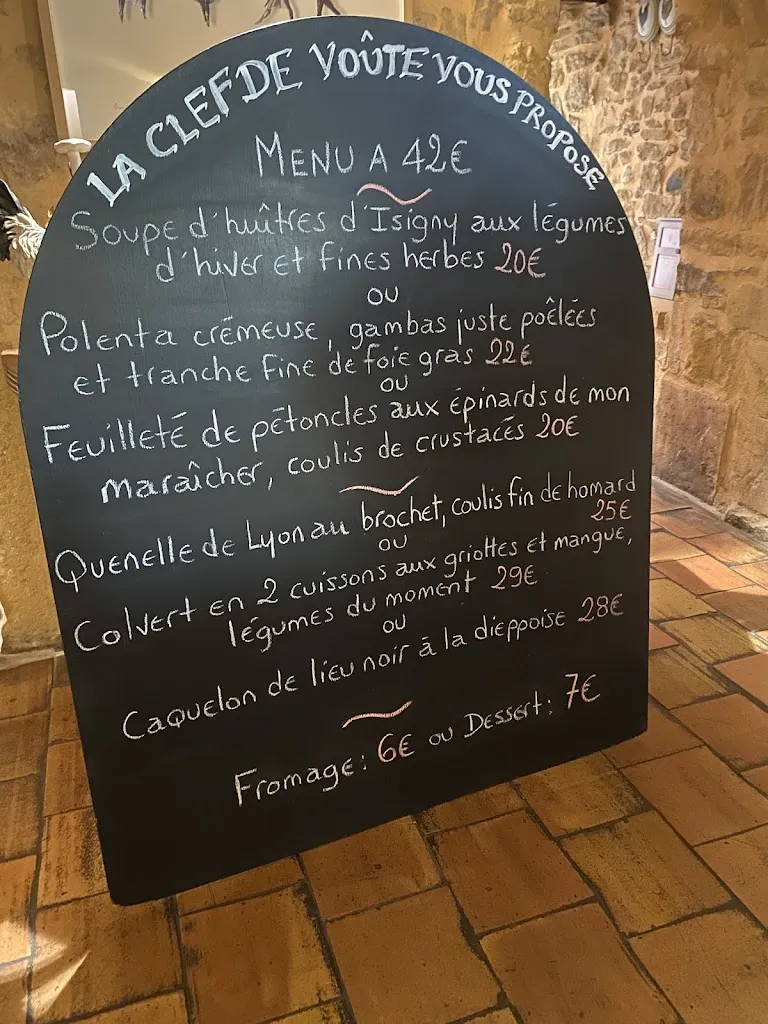 LA CLEF DE VOÛTE VOUS PROPOSE
MENU A 42€
Soupe d'huîtres d'Isigny aux légumes
d'hiver et fines herbes 20€
ou
Polenta crémeuse, gambas juste poêlées
et tranche fine de foie gras 22€
ou
Feuilleté de pétoncles aux épinards de mon
maraîcher, coulis de crustacés 20€
Quenelle de Lyon au brochet, coulis fin de homard
25€
ou
Colvert en 2 cuissons aux griottes et mangue,
légumes du moment 29€
ou
Caquelon de lieu noir à la dieppoise 28€
Fromage: 6€ ou Dessert: 7€